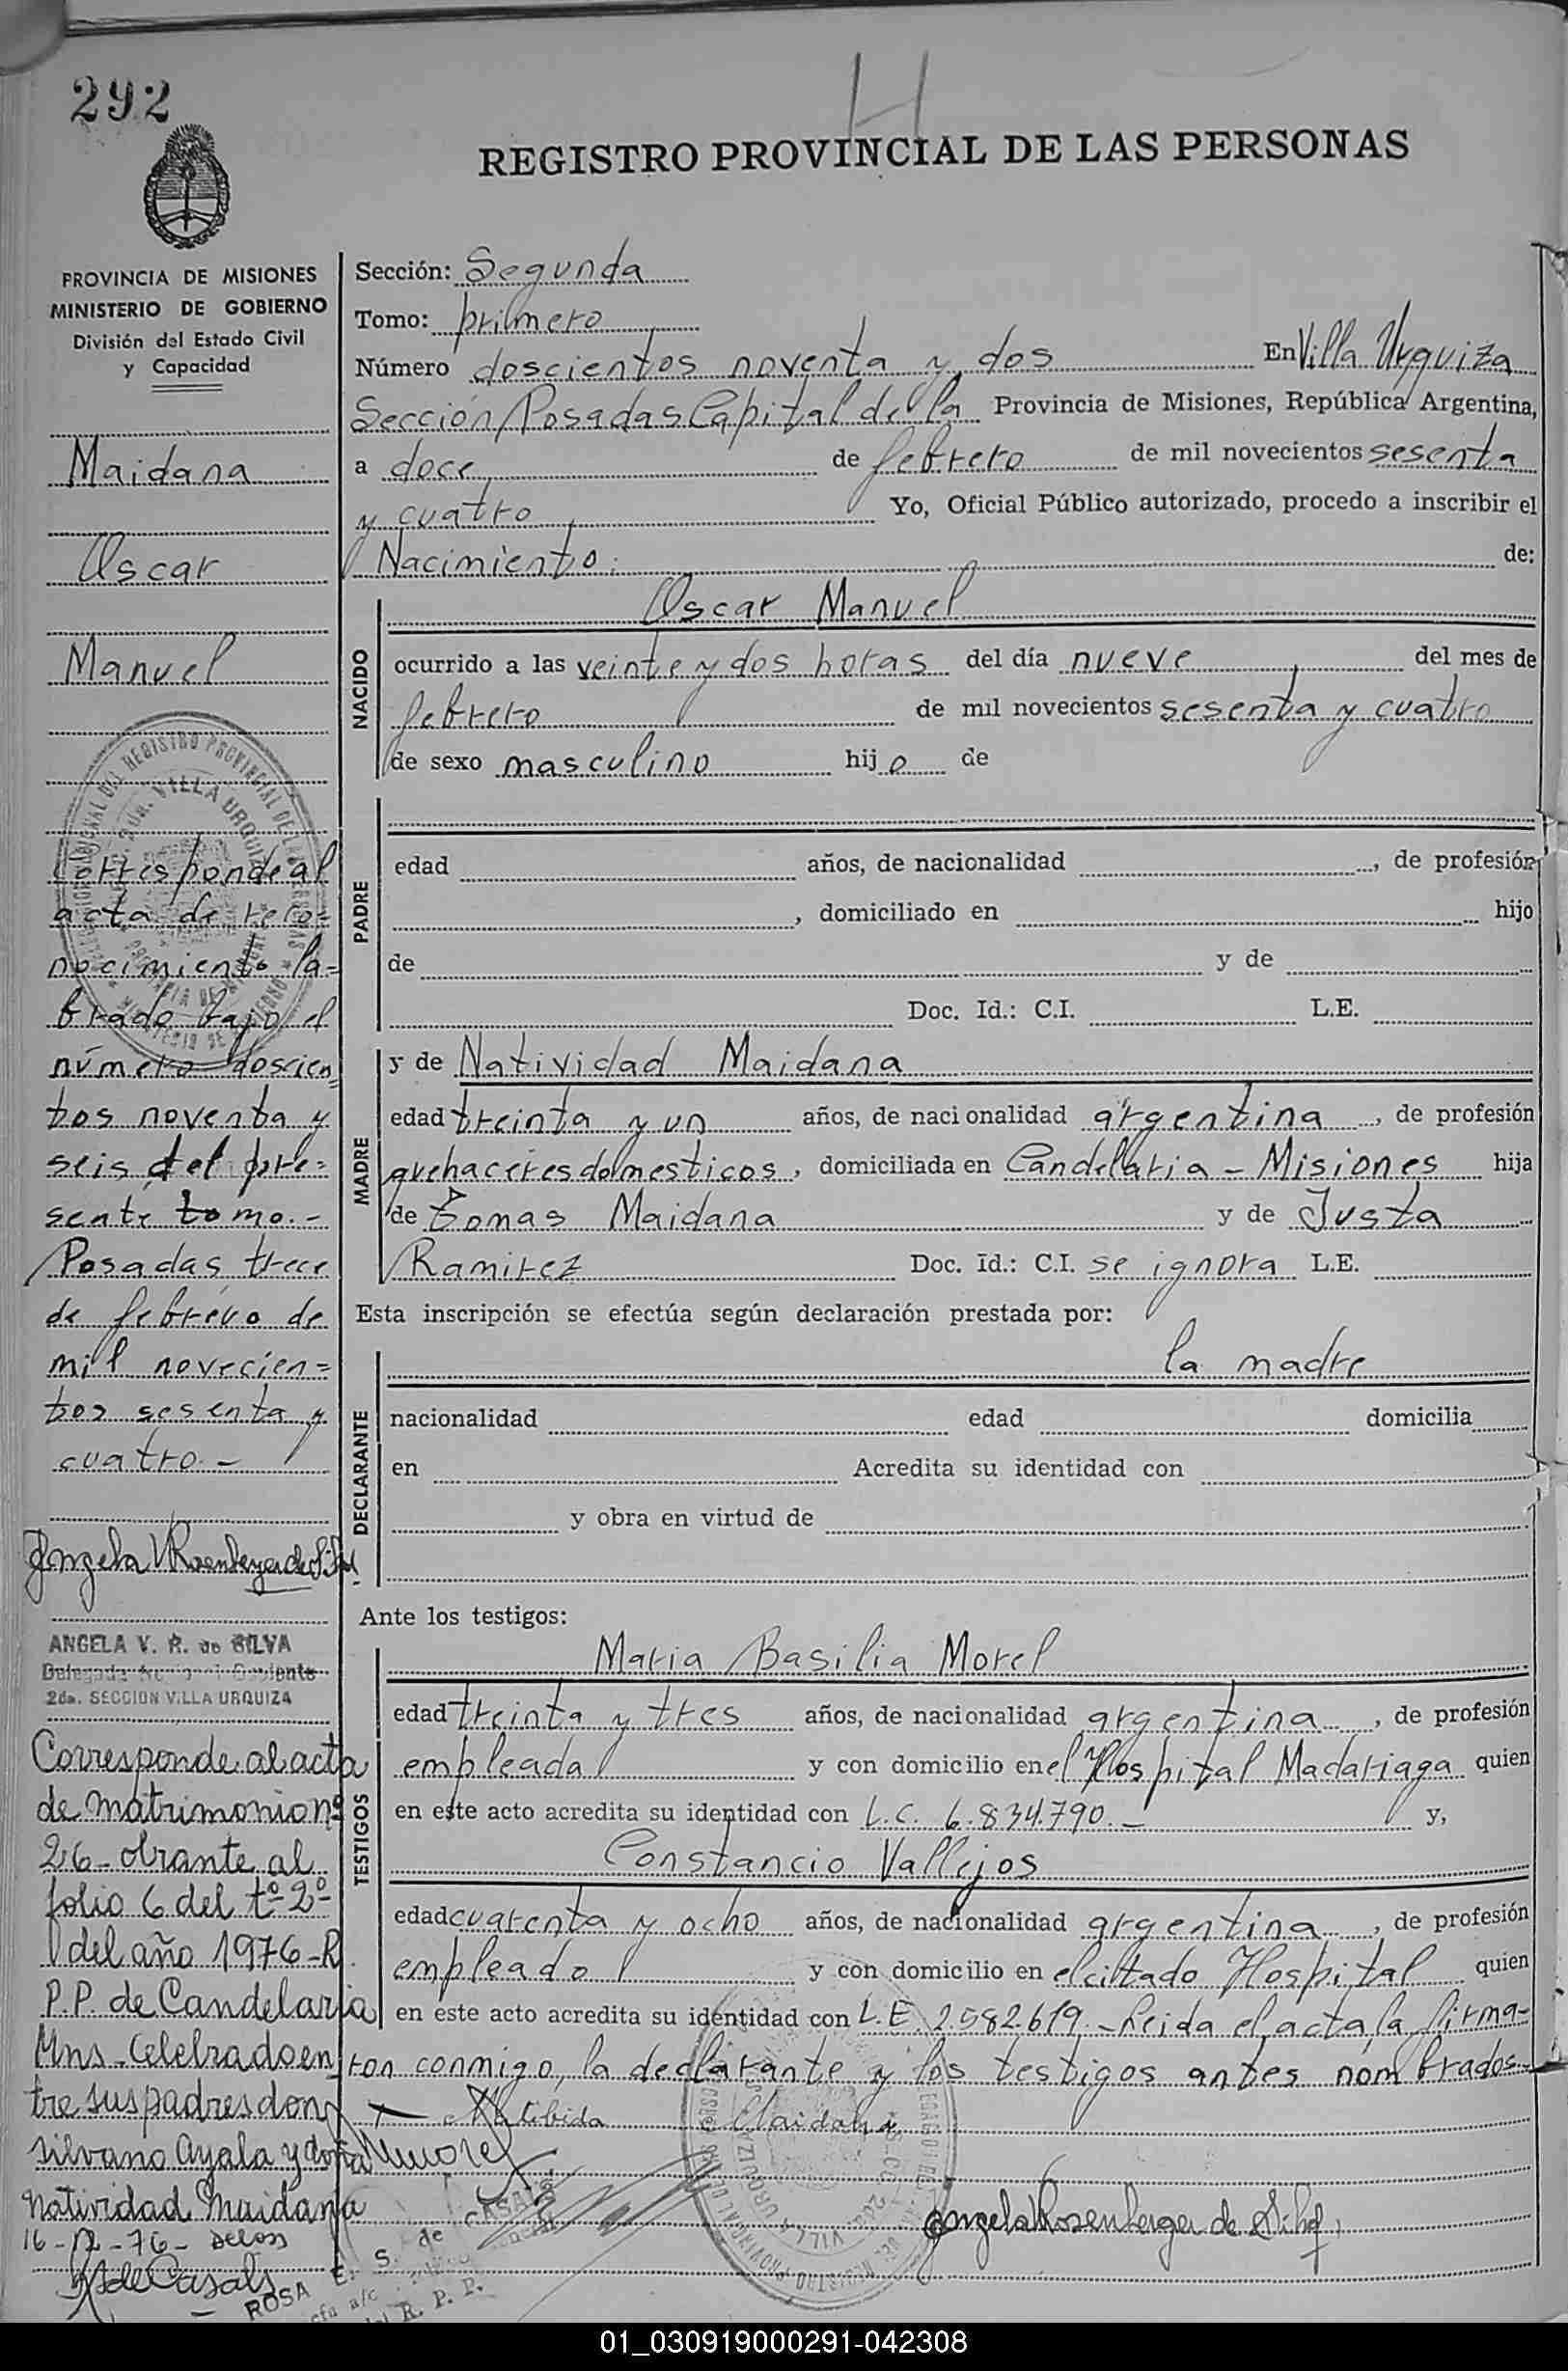 292
H
REGISTRO PROVINCIAL DE LAS PERSONAS
PROVINCIA DE MISIONES
MINISTERIO DE GOBIERNO
División del Estado Civil
y Capacidad
Maidana
Oscar
Manuel
Corresponde al
acta de reco-
nocimiento la=
brado bajo el
número doscien=
tos noventa y
seis del pre=
sente tomo.-
Posadas trece
de febrero de
mil novecien=
tos sesenta y
cuatro.-
Angela V Rosenberger de Silva
ANGELA V. R. de SILVA
2da. SECCION VILLA URQUIZA
Corresponde al acta
de matrimonio nº
26- obrante al
folio 6 del tº 2º
del año 1976-R.
P.P. de Candelaria
Mns. Celebrado en
tre sus padres don
Silvano Ayala y doña
Natividad Maidana
16-12-76-
de Casals
ROSA E. S. de CASALS
R. P. P.
Sección: Segunda
Tomo: primero
Número doscientos noventa y dos En Villa Urquiza
Sección Posadas Capital de la Provincia de Misiones, República Argentina,
a doce de febrero de mil novecientos sesenta
y cuatro Yo, Oficial Público autorizado, procedo a inscribir el
Nacimiento: de:
NACIDO
Oscar Manuel
ocurrido a las veinte y dos horas del día nueve del mes de
febrero de mil novecientos sesenta y cuatro
de sexo masculino hijo de
PADRE
edad años, de nacionalidad , de profesión
, domiciliado en hijo
de y de
Doc. Id.: C.I. L.E.
MADRE
y de Natividad Maidana
edad treinta y un años, de nacionalidad argentina , de profesión
quehaceres domesticos, domiciliada en Candelaria - Misiones hija
de Tomas Maidana y de Justa
Ramirez Doc. Id.: C.I. se ignora L.E.
Esta inscripción se efectúa según declaración prestada por:
DECLARANTE
la madre
nacionalidad edad domicilia
en Acredita su identidad con
y obra en virtud de
Ante los testigos:
TESTIGOS
Maria Basilia Morel
edad treinta y tres años, de nacionalidad argentina , de profesión
empleada y con domicilio en el Hospital Madariaga quien
en este acto acredita su identidad con L.C. 6.834.790.- y,
Constancio Vallejos
edad cuarenta y ocho años, de nacionalidad argentina , de profesión
empleado y con domicilio en el citado Hospital quien
en este acto acredita su identidad con L.E. 2.582.619.- Leida el acta, la firma-
ron conmigo, la declarante y los testigos antes nombrados.-
Maidana
Morel
Angela V Rosenberger de Silva
01_030919000291-042308